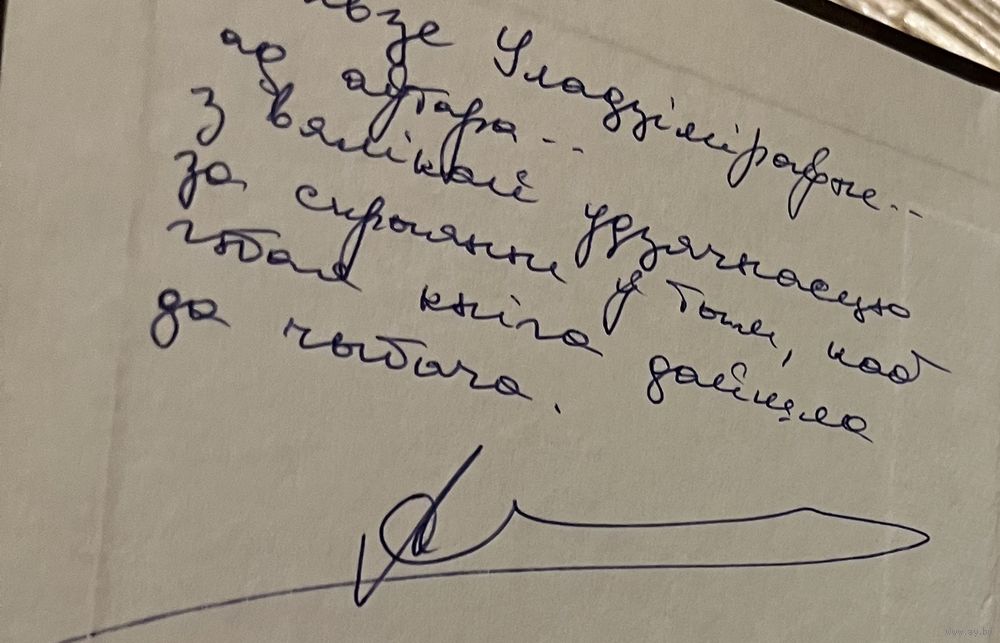 ьзе Уладзіміраўне..
ад аўтара..
З вялікай удзячнасцю
за спрыянне ў тым, каб
гэтая кніга дайшла
да чытача.
www.ay.by